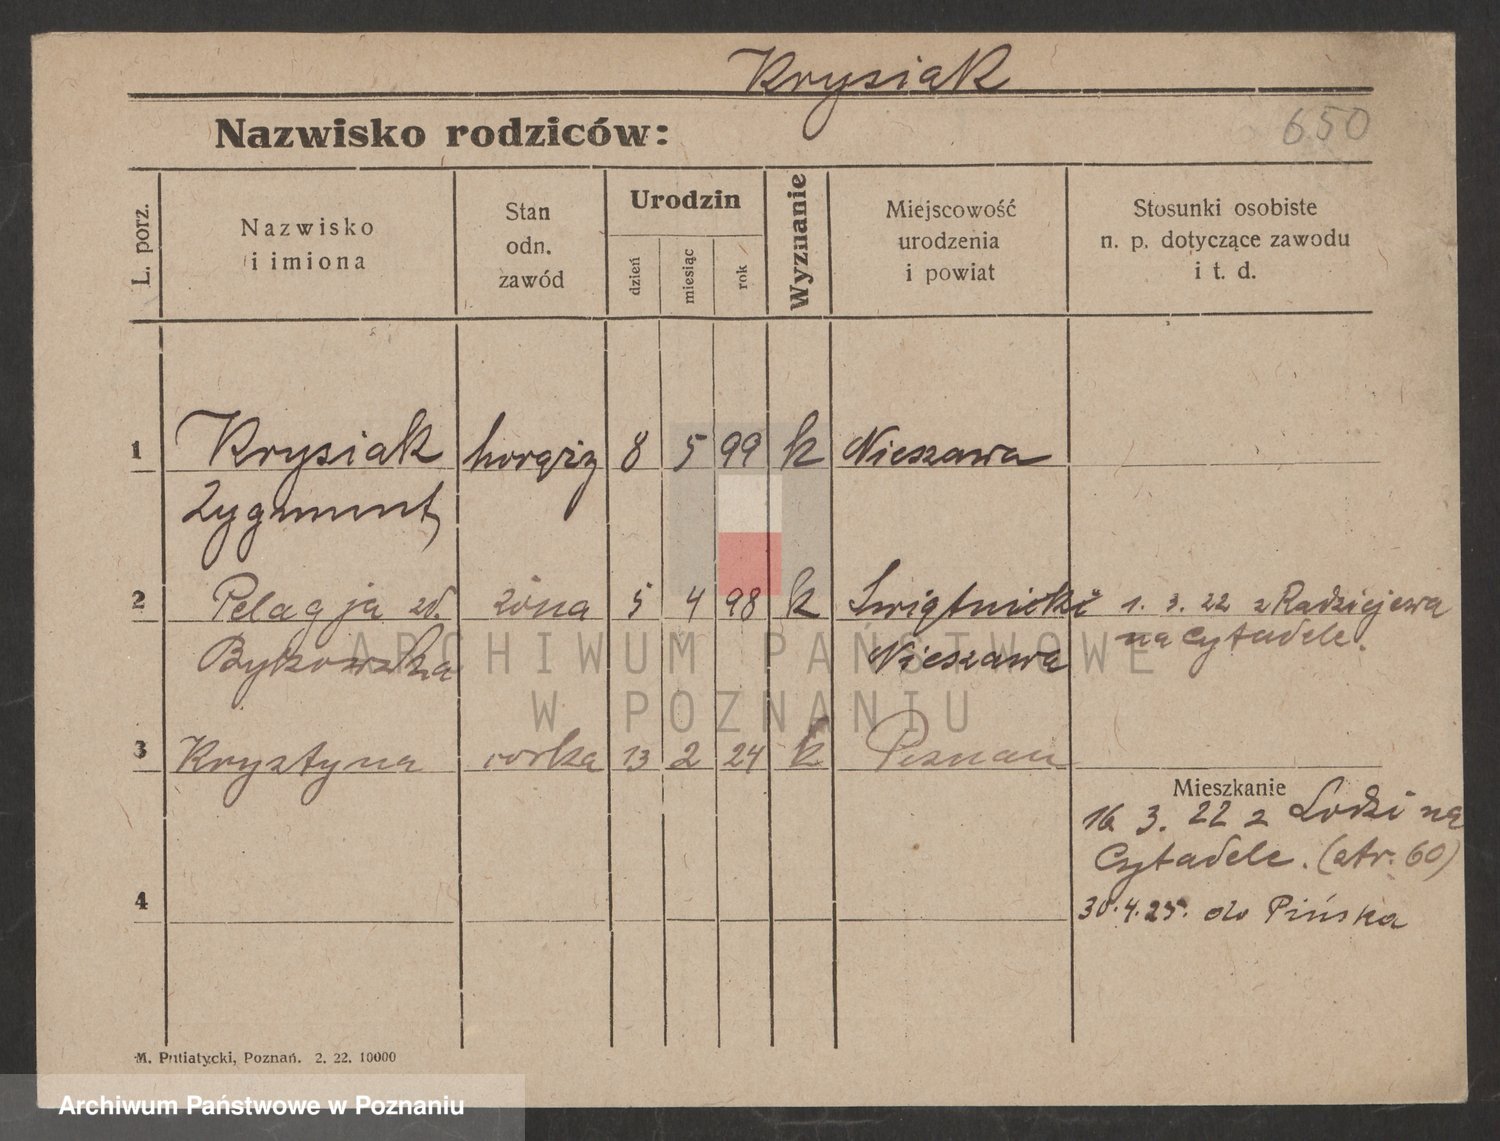 Krysiak
Nazwisko rodziców:
650
L. porz.
Nazwisko
i imiona
Stan
odn.
zawód
Urodzin
dzień
miesiąc
rok
Wyznanie
Miejscowość
urodzenia
i powiat
Stosunki osobiste
n. p. dotyczące zawodu
i t. d.
1 Krysiak chorąży 8 5 99 k Nieszawa
Zygmunt
2 Pelagja zd. żona 5 4 98 k 1. 3. 22 z Radziejewa
Bykowska Nieszawa na Cytadele.
3 Krystyna corka 13 2 24 k Poznan
Mieszkanie
16 3. 22 z Lodzi na
Cytadele. (str. 60)
4 30.4.25. do Pińska
M. Putiatycki, Poznań. 2. 22. 10000
ARCHIWUM PAŃSTWOWE
W POZNANIU
Archiwum Państwowe w Poznaniu